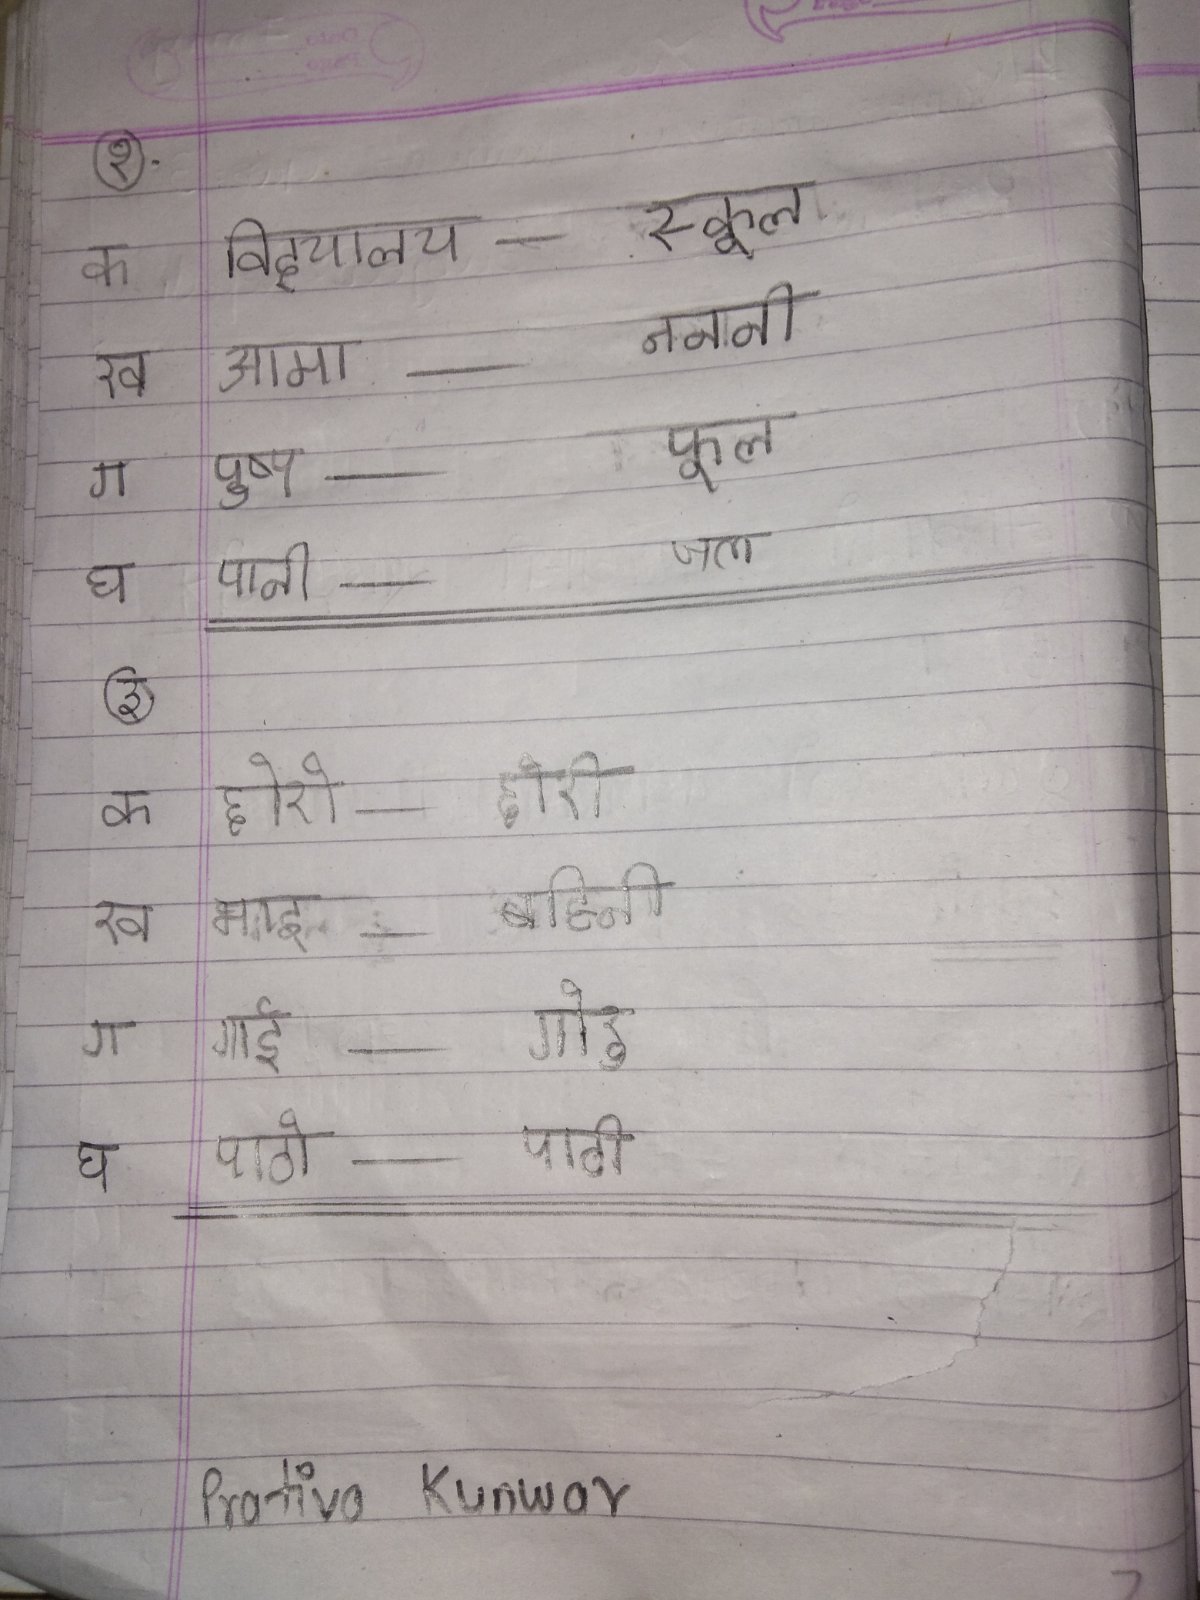 २.
क विद्यालय — स्कूल
ख आमा — ननानी
ग पुष्प — फूल
घ पानी — जल
३
क छोरो — छोरी
ख भाइ — बहिनी
ग गाई — गोरु
घ पाठो — पाठी
Prativa Kunwar